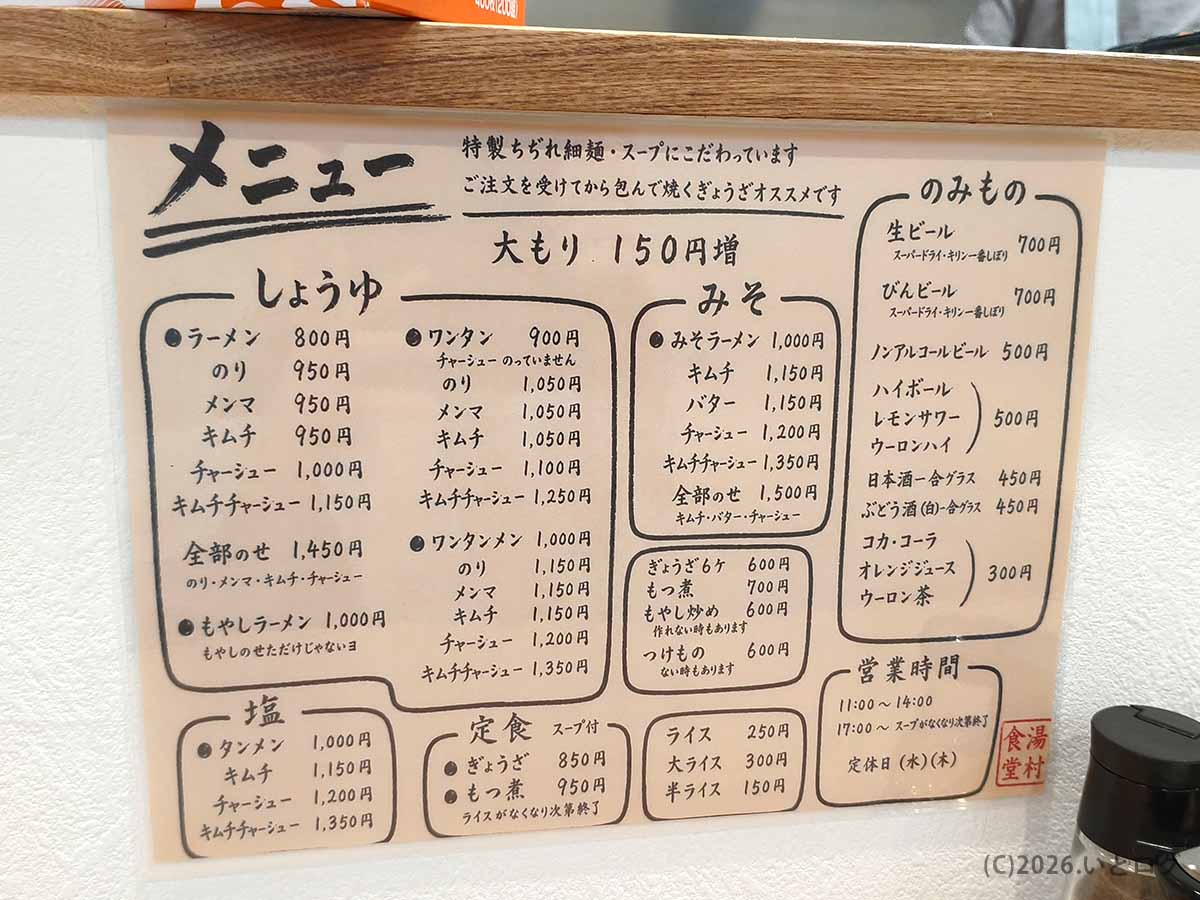 400枚(200組)
メニュー
特製ちぢれ細麺・スープにこだわっています
ご注文を受けてから包んで焼くぎょうざオススメです
大もり 150円増
しょうゆ
●ラーメン 800円
のり 950円
メンマ 950円
キムチ 950円
チャーシュー 1,000円
キムチチャーシュー 1,150円
全部のせ 1,450円
のり・メンマ・キムチ・チャーシュー
●もやしラーメン 1,000円
もやしのせただけじゃないヨ
●ワンタン 900円
チャーシューのっていません
のり 1,050円
メンマ 1,050円
キムチ 1,050円
チャーシュー 1,100円
キムチチャーシュー 1,250円
●ワンタンメン 1,000円
のり 1,150円
メンマ 1,150円
キムチ 1,150円
チャーシュー 1,200円
キムチチャーシュー 1,350円
みそ
●みそラーメン 1,000円
キムチ 1,150円
バター 1,150円
チャーシュー 1,200円
キムチチャーシュー 1,350円
全部のせ 1,500円
キムチ・バター・チャーシュー
ぎょうざ6ケ 600円
もつ煮 700円
もやし炒め 600円
作れない時もあります
つけもの 600円
ない時もあります
のみもの
生ビール 700円
スーパードライ・キリン一番しぼり
びんビール 700円
スーパードライ・キリン一番しぼり
ノンアルコールビール 500円
ハイボール
レモンサワー 500円
ウーロンハイ
日本酒一合グラス 450円
ぶどう酒(白)一合グラス 450円
コカ・コーラ
オレンジジュース 300円
ウーロン茶
塩
●タンメン 1,000円
キムチ 1,150円
チャーシュー 1,200円
キムチチャーシュー 1,350円
定食 スープ付
●ぎょうざ 850円
●もつ煮 950円
ライスがなくなり次第終了
ライス 250円
大ライス 300円
半ライス 150円
営業時間
11:00〜14:00
17:00〜スープがなくなり次第終了
定休日(水)(木)
湯村
食堂
(C)2026.いとログ